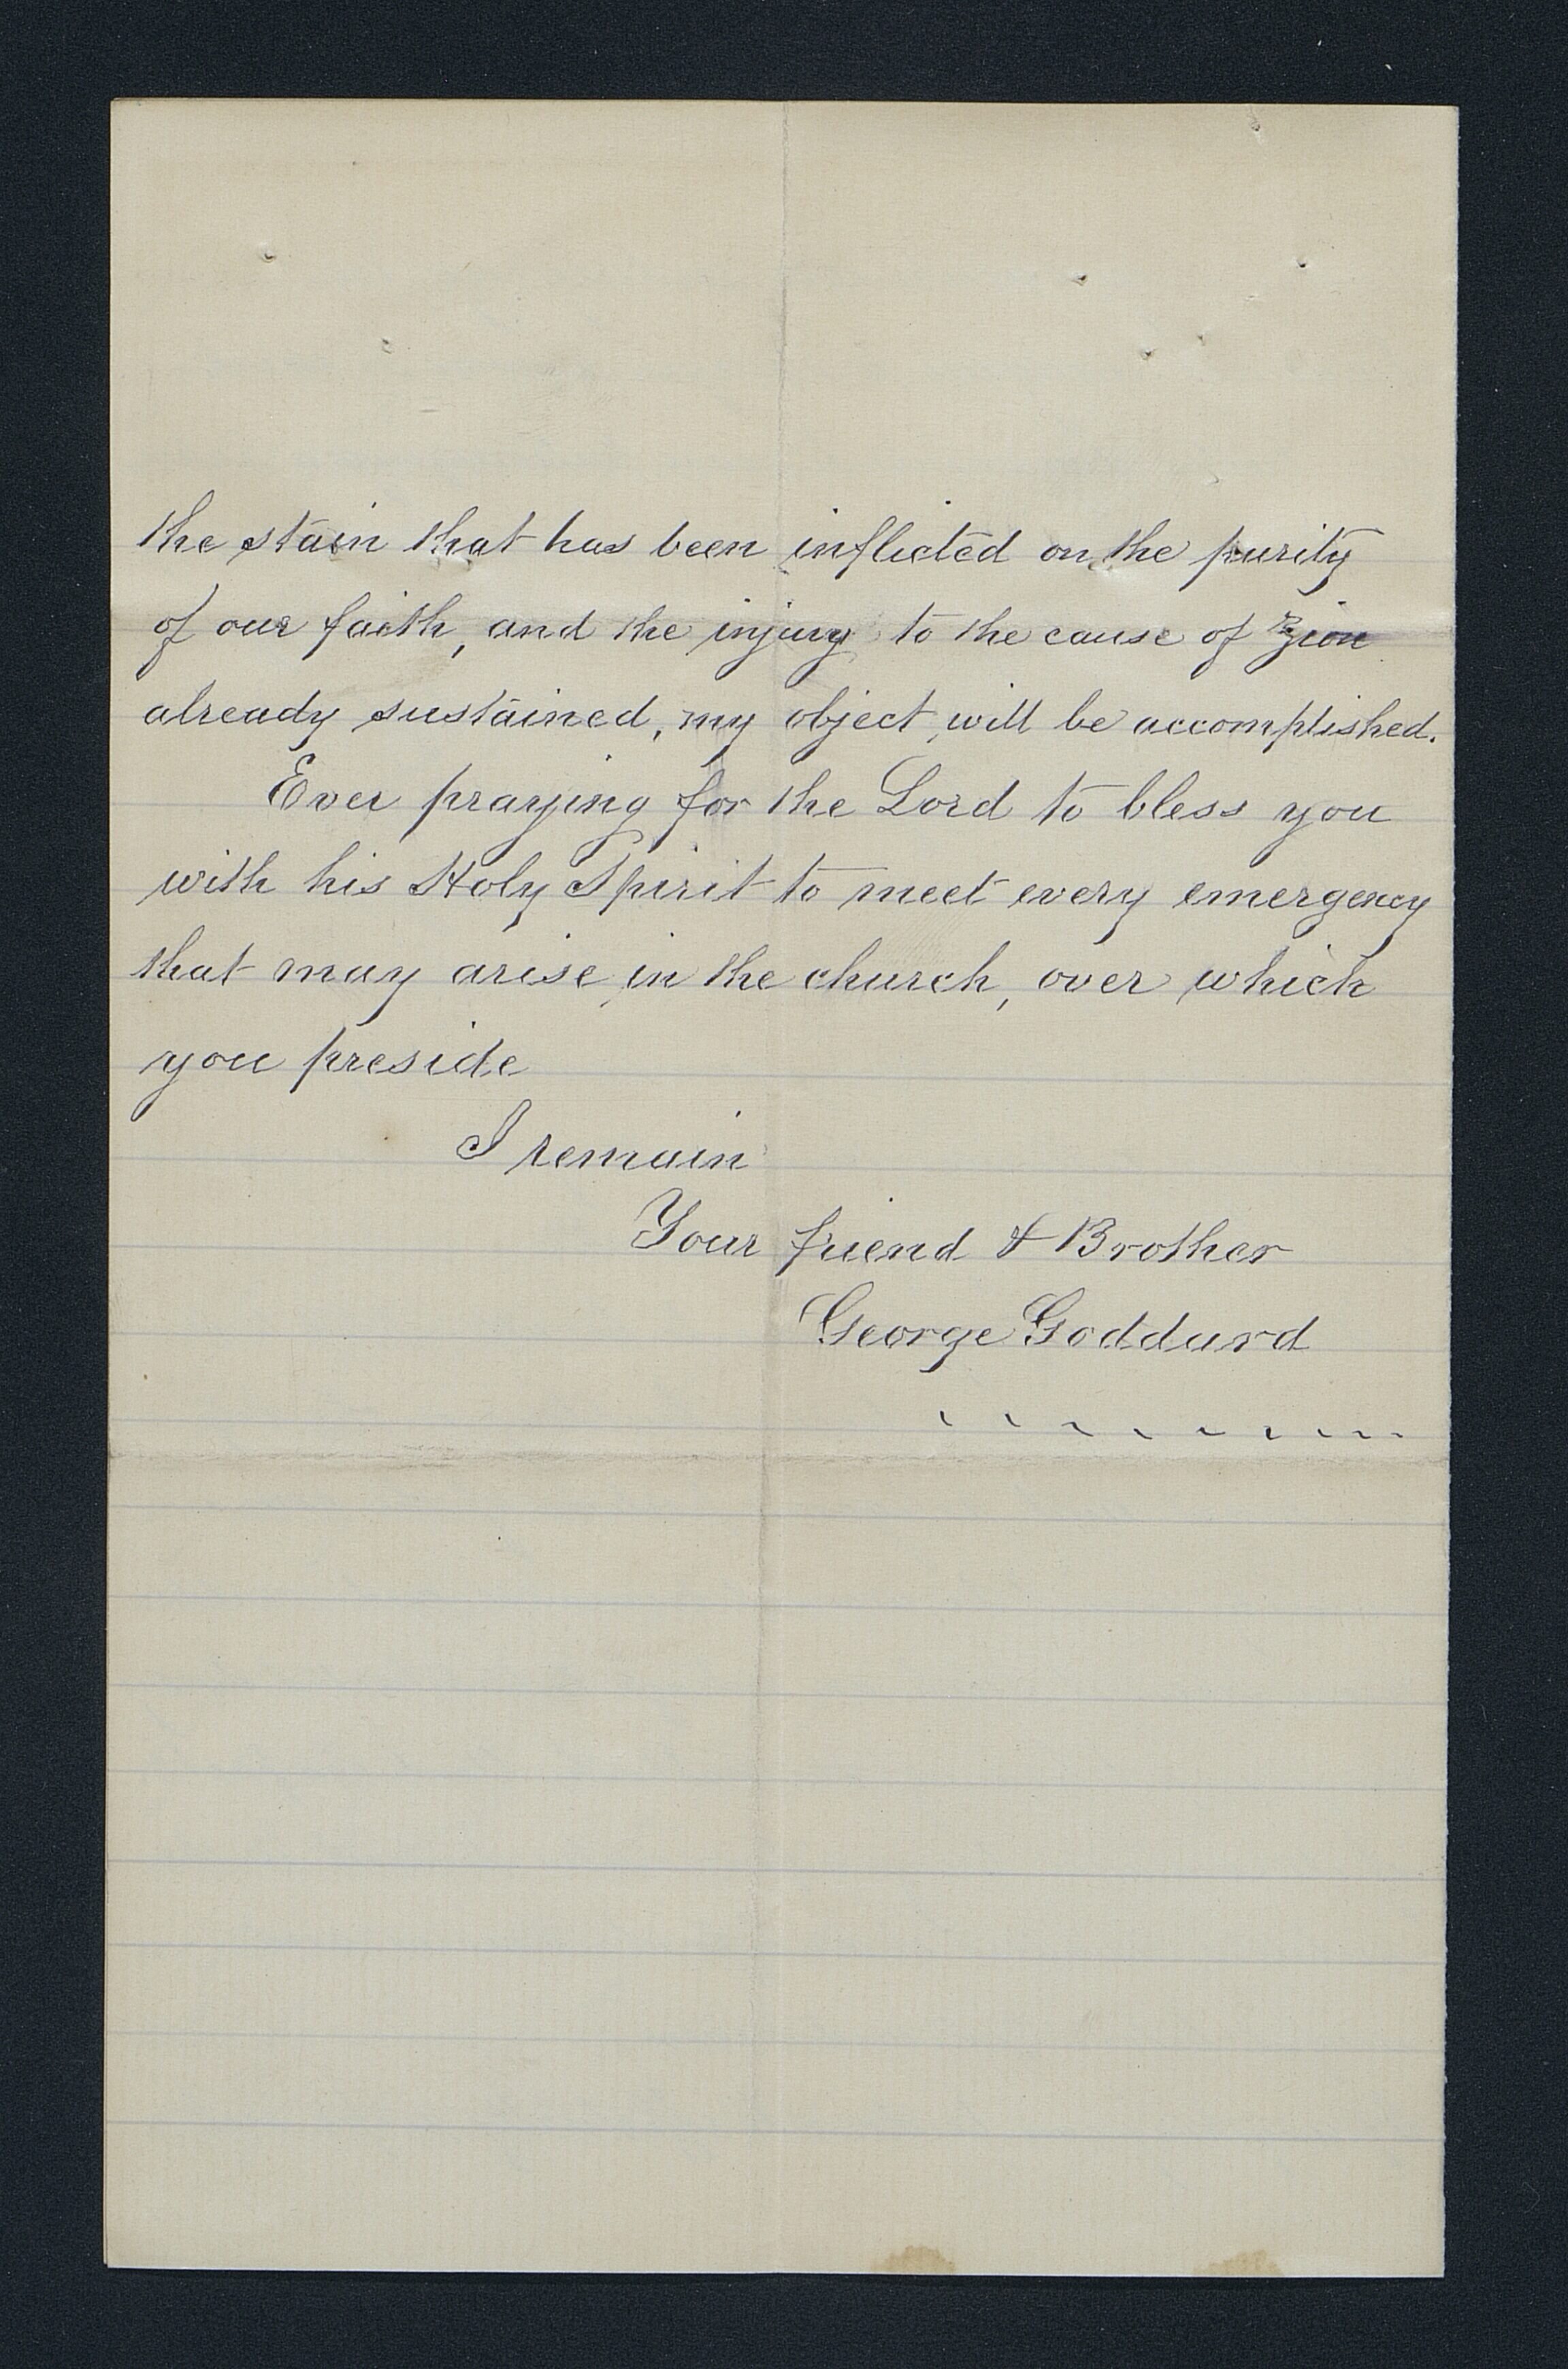 the stain that has been inflicted on the purity
of our faith, and the injury to the cause of Zion
already sustained, my object will be accomplished.
Ever praying for the Lord to bless you
with his Holy Spirit to meet every emergency
that may arise in the church, over which
you preside
I remain
Your friend & Brother
George Goddard